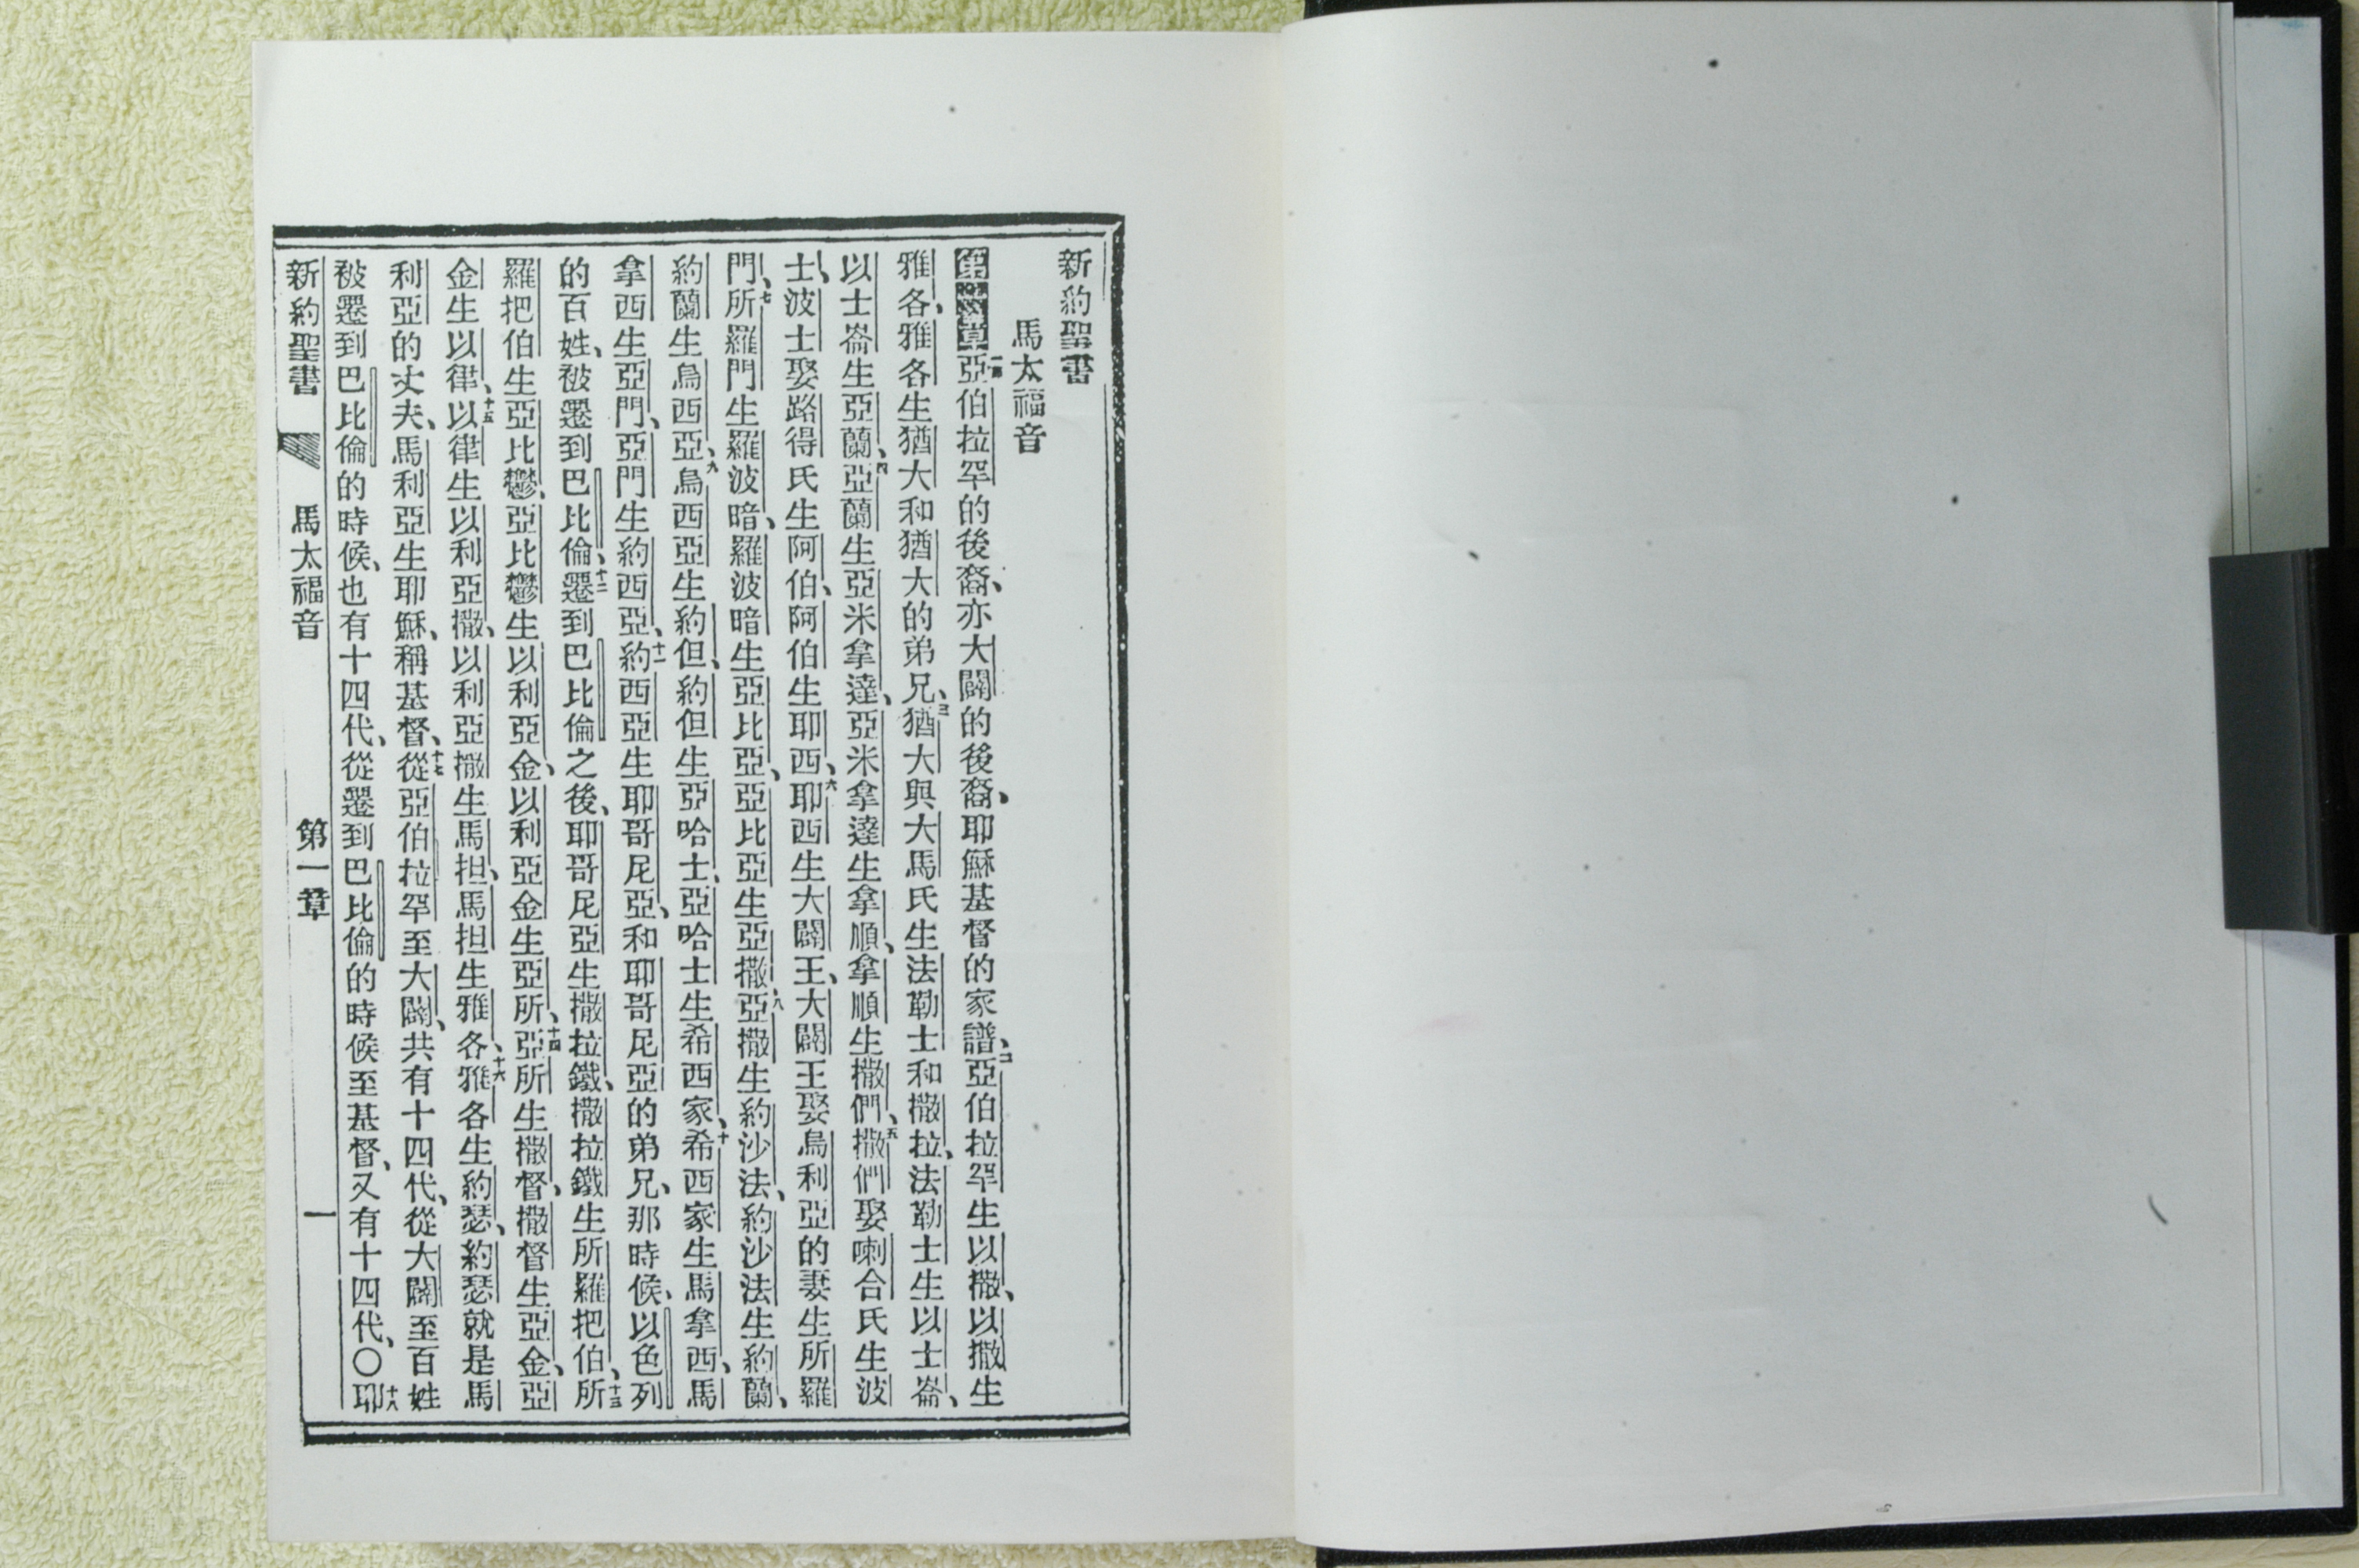 新約聖書
馬太福音
第一章 亞伯拉罕的後裔、亦大闢的後裔、耶穌基督的家譜、二亞伯拉罕生以撒、以撒生
雅各、雅各生猶大和猶大的弟兄、三猶大與大馬氏生法勒士和撒拉、法勒士生以士崙、
以士崙生亞蘭、四亞蘭生亞米拿達、亞米拿達生拿順、拿順生撒們、五撒們娶喇合氏生波
士、波士娶路得氏生阿伯、阿伯生耶西、六耶西生大闢王、大闢王娶烏利亞的妻生所羅
門、七所羅門生羅波暗、羅波暗生亞比亞、亞比亞生亞撒、八亞撒生約沙法、約沙法生約蘭、
約蘭生烏西亞、九烏西亞生約但、約但生亞哈士、亞哈士生希西家、十希西家生馬拿西、馬
拿西生亞門、亞門生約西亞、十一約西亞生耶哥尼亞、和耶哥尼亞的弟兄、那時候、以色列
的百姓、被遷到巴比倫、十二遷到巴比倫之後、耶哥尼亞生撒拉鐵、撒拉鐵生所羅把伯、十三所
羅把伯生亞比鬱、亞比鬱生以利亞金、以利亞金生亞所、十四亞所生撒督、撒督生亞金、亞
金生以律、十五以律生以利亞撒、以利亞撒生馬担、馬担生雅各、十六雅各生約瑟、約瑟就是馬
利亞的丈夫、馬利亞生耶穌、稱基督、十七從亞伯拉罕至大闢、共有十四代、從大闢至百姓
被遷到巴比倫的時候、也有十四代、從遷到巴比倫的時候至基督、又有十四代、〇十八耶
新約聖書 馬太福音 第一章 一